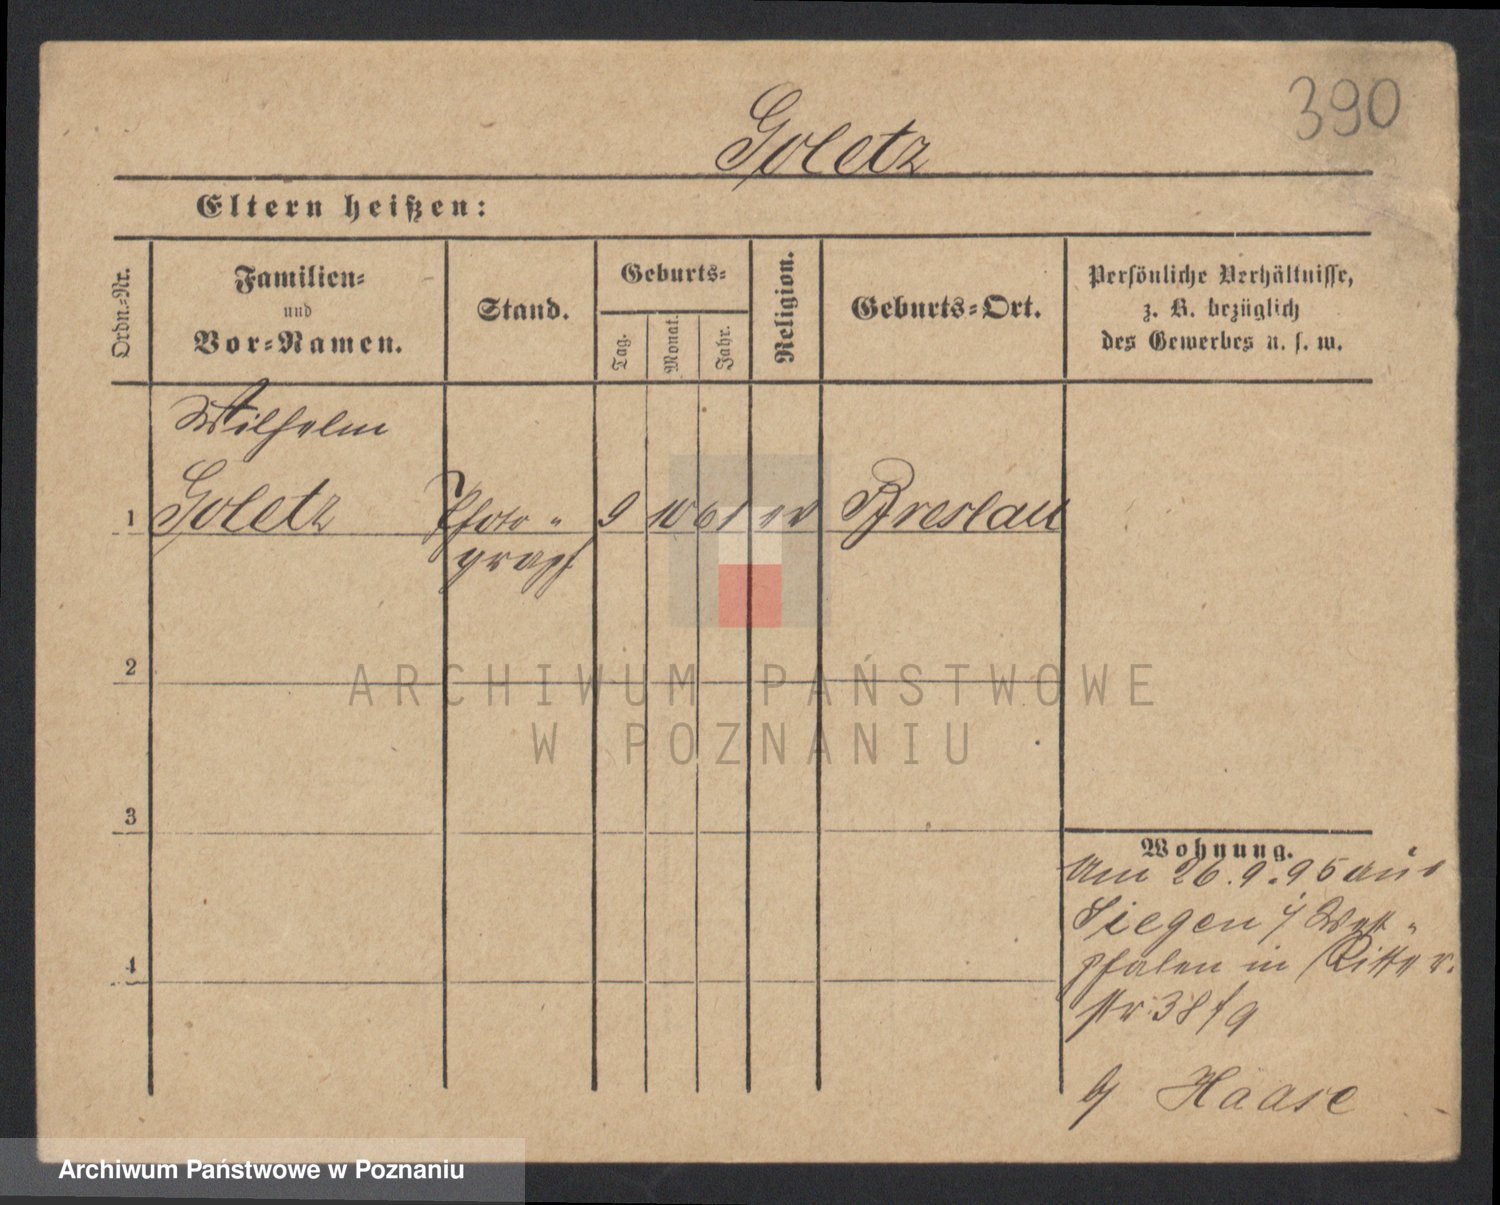 390
Goletz
Eltern heißen:
Ordn.-Nr.
Familien-
und
Vor-Namen.
Stand.
Geburts-
Tag.
Monat.
Jahr.
Religion.
Geburts-Ort.
Persönliche Verhältnisse,
z. B. bezüglich
des Gewerbes u. s. w.
Wilhelm
1 Goletz Photo- 9 10 61 ev Breslau
graph
2
3
4
ARCHIWUM PAŃSTWOWE
W POZNANIU
Wohnung.
Am 26.9.95 aus
Siegen i/ West-
phalen in Ritter-
str 38/9
b/ Haase
Archiwum Państwowe w Poznaniu